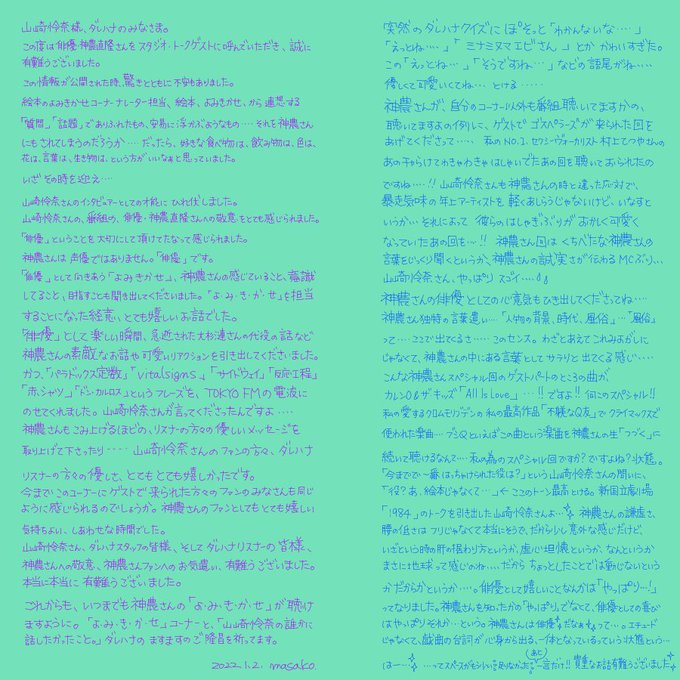 山崎怜奈様、ダレハナのみなさま。
この度は俳優・神農直隆さんをスタジオ・トークゲストに呼んでいただき、誠に
有難うございました。
この情報が公開された時、驚きとともに不安もありました。
絵本のよみきかせコーナーナレーター担当、絵本、よみきかせ、から連想する
「質問」「話題」でありふれたもの、安易に浮かぶようなもの‥‥それを神農さん
にもされてしまうのだろうか‥‥だったら、好きな食べ物は、飲み物は、色は、
花は、言葉は、生き物は、という方がいいなぁと思っていました。
いざその時を迎え‥‥
山崎怜奈さんのインタビュアーとしての才能にひれ伏しました。
山崎怜奈さんの、番組の、俳優・神農直隆さんへの敬意もとても感じられました。
「俳優」ということを大切にして頂けてたなって感じられました。
神農さんは声優ではありません。「俳優」です。
「俳優」として向きあう「よみきかせ」、神農さんの感じていること、意識
してること、目指すことも聞き出してくださいました。「よ・み・き・か・せ」を担当
することになった経緯、とても嬉しいお話でした。
「俳優」として楽しい瞬間、急逝された大杉漣さんの代役の話など
神農さんの素敵なお話や可愛いリアクションを引き出してくださいました。
かつ、「パラドックス定数」「vitalsigns」「サイドウェイ」「反応工程」
「赤シャツ」「ドン・カルロス」というフレーズを、TOKYO FMの電波に
のせてくれました。山崎怜奈さんが言ってくださったんですよ‥‥
神農さんもこみ上げるほどの、リスナーの方々の優しいメッセージを
取り上げて下さったり‥‥山崎怜奈さんのファンの方々、ダレハナ
リスナーの方々の優しさ、とてもとても嬉しかったです。
今までこのコーナーにゲストで来られた方々のファンのみなさんも同じ
ように感じられるのでしょうか。神農さんのファンとしてもとても嬉しい
気持ちよい、しあわせな時間でした。
山崎怜奈さん、ダレハナスタッフの皆様、そしてダレハナリスナーの皆様、
神農さんへの敬意、神農さんファンへのお気遣い、有難うございました。
本当に本当に有難うございました。
これからも、いつまでも神農さんの「よ・み・き・か・せ」が聴け
ますように。「よ・み・き・か・せ」コーナーと、「山崎怜奈の誰かに
話したかったこと。」ダレハナのますますのご隆昌を祈ってます。
2022.1.2. masako.
突然のダレハナクイズにぽそっと「わかんないな‥‥」
「えっとね‥‥」「ミナミヌマエビさん」とかかわいすぎた。
この「えっとね‥‥」「そうですね‥‥」などの語尾がね‥‥
優しくて可愛いくてね‥‥とける‥‥‥
神農さんが、自分のコーナー以外も番組聴いてますかの、
聴いてますよの例に、ゲストでゴスペラーズが来られた回を
あげてくださって‥‥、私のNO.1.セクシーヴォーカリスト村上てつやさんの
あのチャらけてわきゃわきゃはしゃいでたあの回を聴いておられたの
ですね‥‥!! 山崎怜奈さんも神農さんの時と違った応対で、
暴走気味の年上アーティストを軽くあしらうじゃないけど、いなすと
いうか‥‥それによって彼らのはしゃぎぶりがおかしく可愛く
なっていたあの回を‥‥!! 神農さん回はくちべたな神農さんの
言葉をじっくり聞くというか、神農さんの誠実さが伝わるMCぶり‥‥
山崎怜奈さん、やっぱりスゴイ‥‥
神農さんの俳優としての心意気もひき出してくださってね‥‥
神農さん独特の言葉遣い…「人物の背景、時代、風俗」…「風俗」
って‥‥ここで出てくるさ‥‥このセンス。わざとあえてこれみよがしに
じゃなくて、神農さんの中にある言葉としてサラリと出てくる感じ‥‥
こんな神農さんスペシャル回のゲストパートのところの曲が、
カレン O&ザ・キッズ「All Is Love」‥‥!! ですよ!! 何このスペシャル!!
私の愛するクロムモリブデンの私の最高作品「不軽なQ友」でクライマックスで
使われた楽曲‥‥ブシQといえばこの曲という楽曲を神農さんの生「つづく」に
続いて聴けるなんて‥‥私の為のスペシャル回ですか?ですよね?状態。
「今までで一番はっちゃけられた役は?」という山崎怜奈さんの問いに、
「役?あ、絵本じゃなくて…」← ここのトーン最高とける。新国立劇場
「1984」のトークを引き出した山崎怜奈さんよ‥‥神農さんの謙虚さ、
腰の低さはフリじゃなくて本当にそうで、だから少し意外な感じだけど、
いざという時の肝が据わり方というか、虚心坦懐というか、なんというか
まさに地球って感じのね‥‥だからちょっとしたことでは動じないという
かだからかというか‥‥。俳優として嬉しいことなんかは「やっぱり…!」
ってなりました。神農さんを知ったのが「やっぱり」でなくて、俳優としての喜び
はやっぱりそれか…という。神農さんは俳優だなぁって…。エチュード
じゃなくて、戯曲の台詞が心身から出る、一体となっているっていう状態という…
はー‥‥ …ってスペースがもうない足りなかった。(あと)一言だけ!! 貴重なお話有難うございました